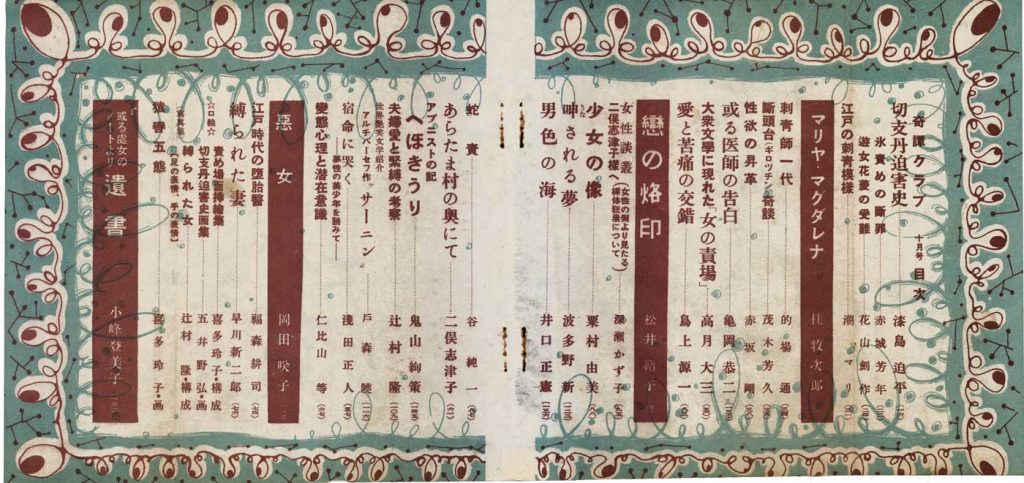 奇譚クラブ 十月号 目次
切支丹迫害史 漆島迫平
氷責めの斷罪 赤城芳年
遊女花菱の受難 花山創作
江戸の刺青模様 潮マリ
マリヤ マグダレナ 桂牧次郎
刺青師一代 的場通
斷頭台(ギロツチン)奇談 茂木芳久
性欲の昇革 赤坂剛
或る医師の告白 亀岡恭二
大衆文學に現れた「女の責場」 高月大三
愛と苦痛の交錯 鳥上源一
戀の烙印 松井籟子
女性談叢(女性の側より見たる)
二俣志津子様へ(裸体狂楽について) 深瀬かず子
少女の像 粟村由美
呻される夢 波多野新
男色の海 井口正憲
蛇責 谷純一
あらたま村の奥にて 二俣志津子
アブニストの記
へぼきうり 鬼山絢策
夫婦愛と緊縛の考察 辻村隆
世界艶笑文学紹介
アルチバーセフ作"サーニン" 戸森
宿命に哭く―夢性の美少年を読みて― 淺田正人
變態心理と潜在意識 仁比山等
惡女 岡田咲子
江戸時代の墮胎醫 福森耕司
縛られた妻 早川新二郎
☆口絵☆
責め場面挿繪集 喜多玲子・構成
切支丹迫害史画集 五井野弘・画
縛られた女 辻村隆・構成
(足の表情、手の表情)
五態 喜多玲子・画
或る処女のノートより 遺書 小峰登美子